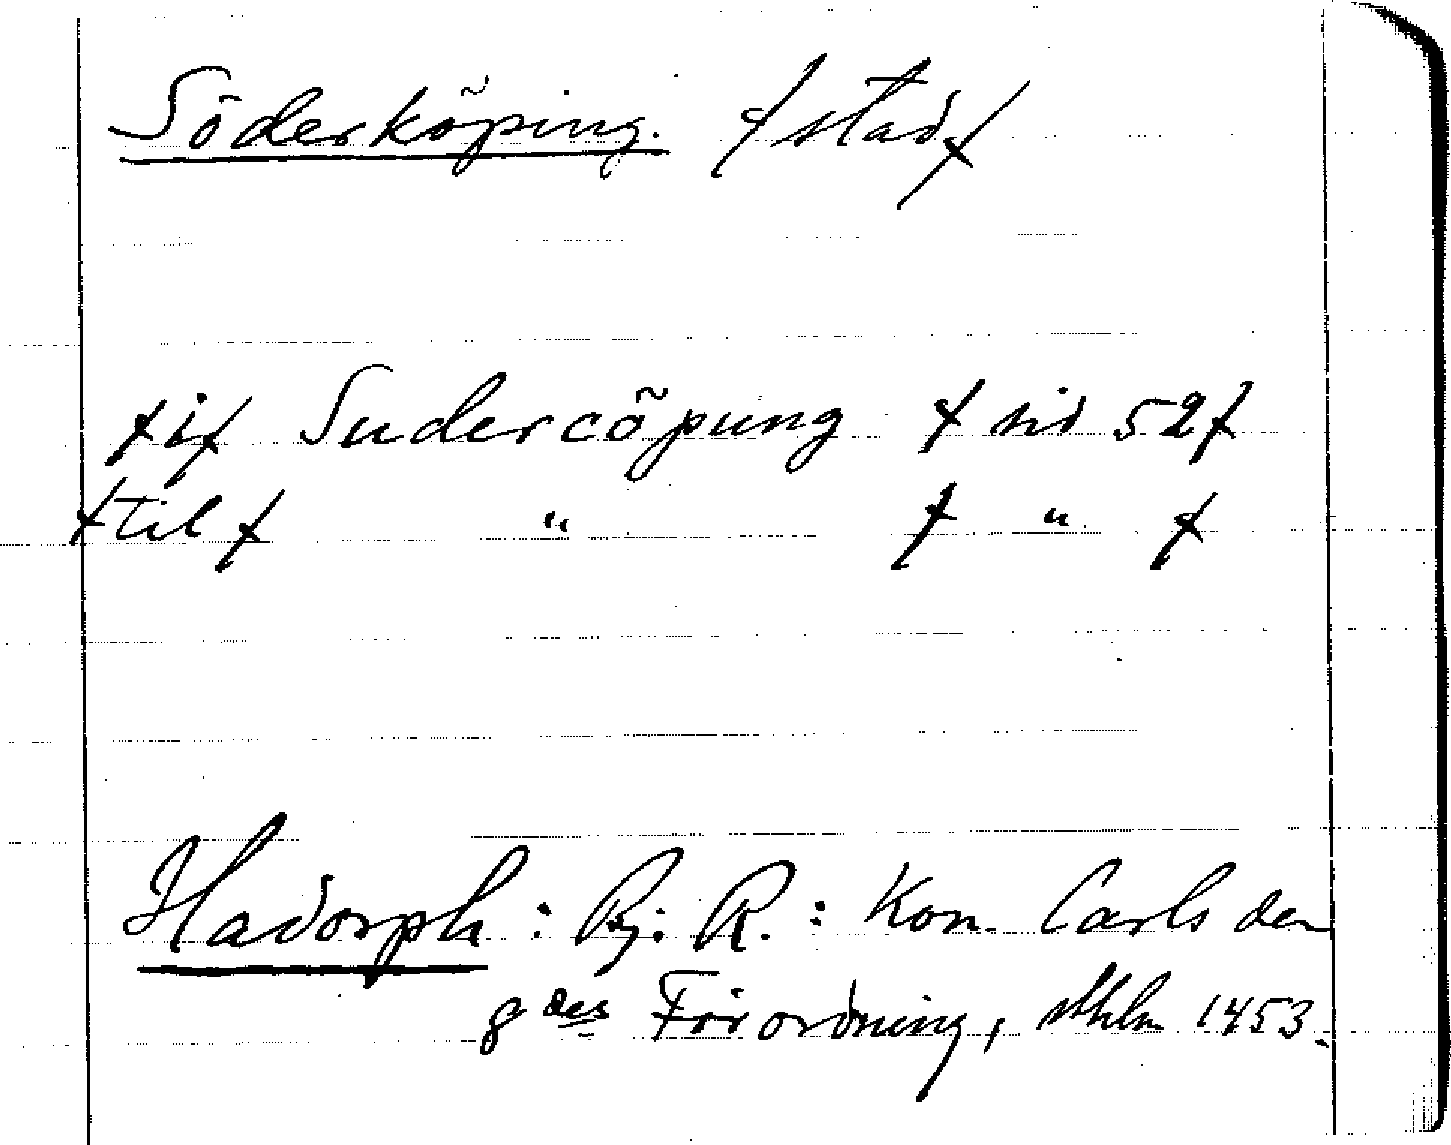 Söderköping. /stad/
/i/ Sudercöpung / sid 52/
/til/ " / " /
Hadorph : Bj. R. : Kon. Carls den
8 des Förordning, sthlm 1453.